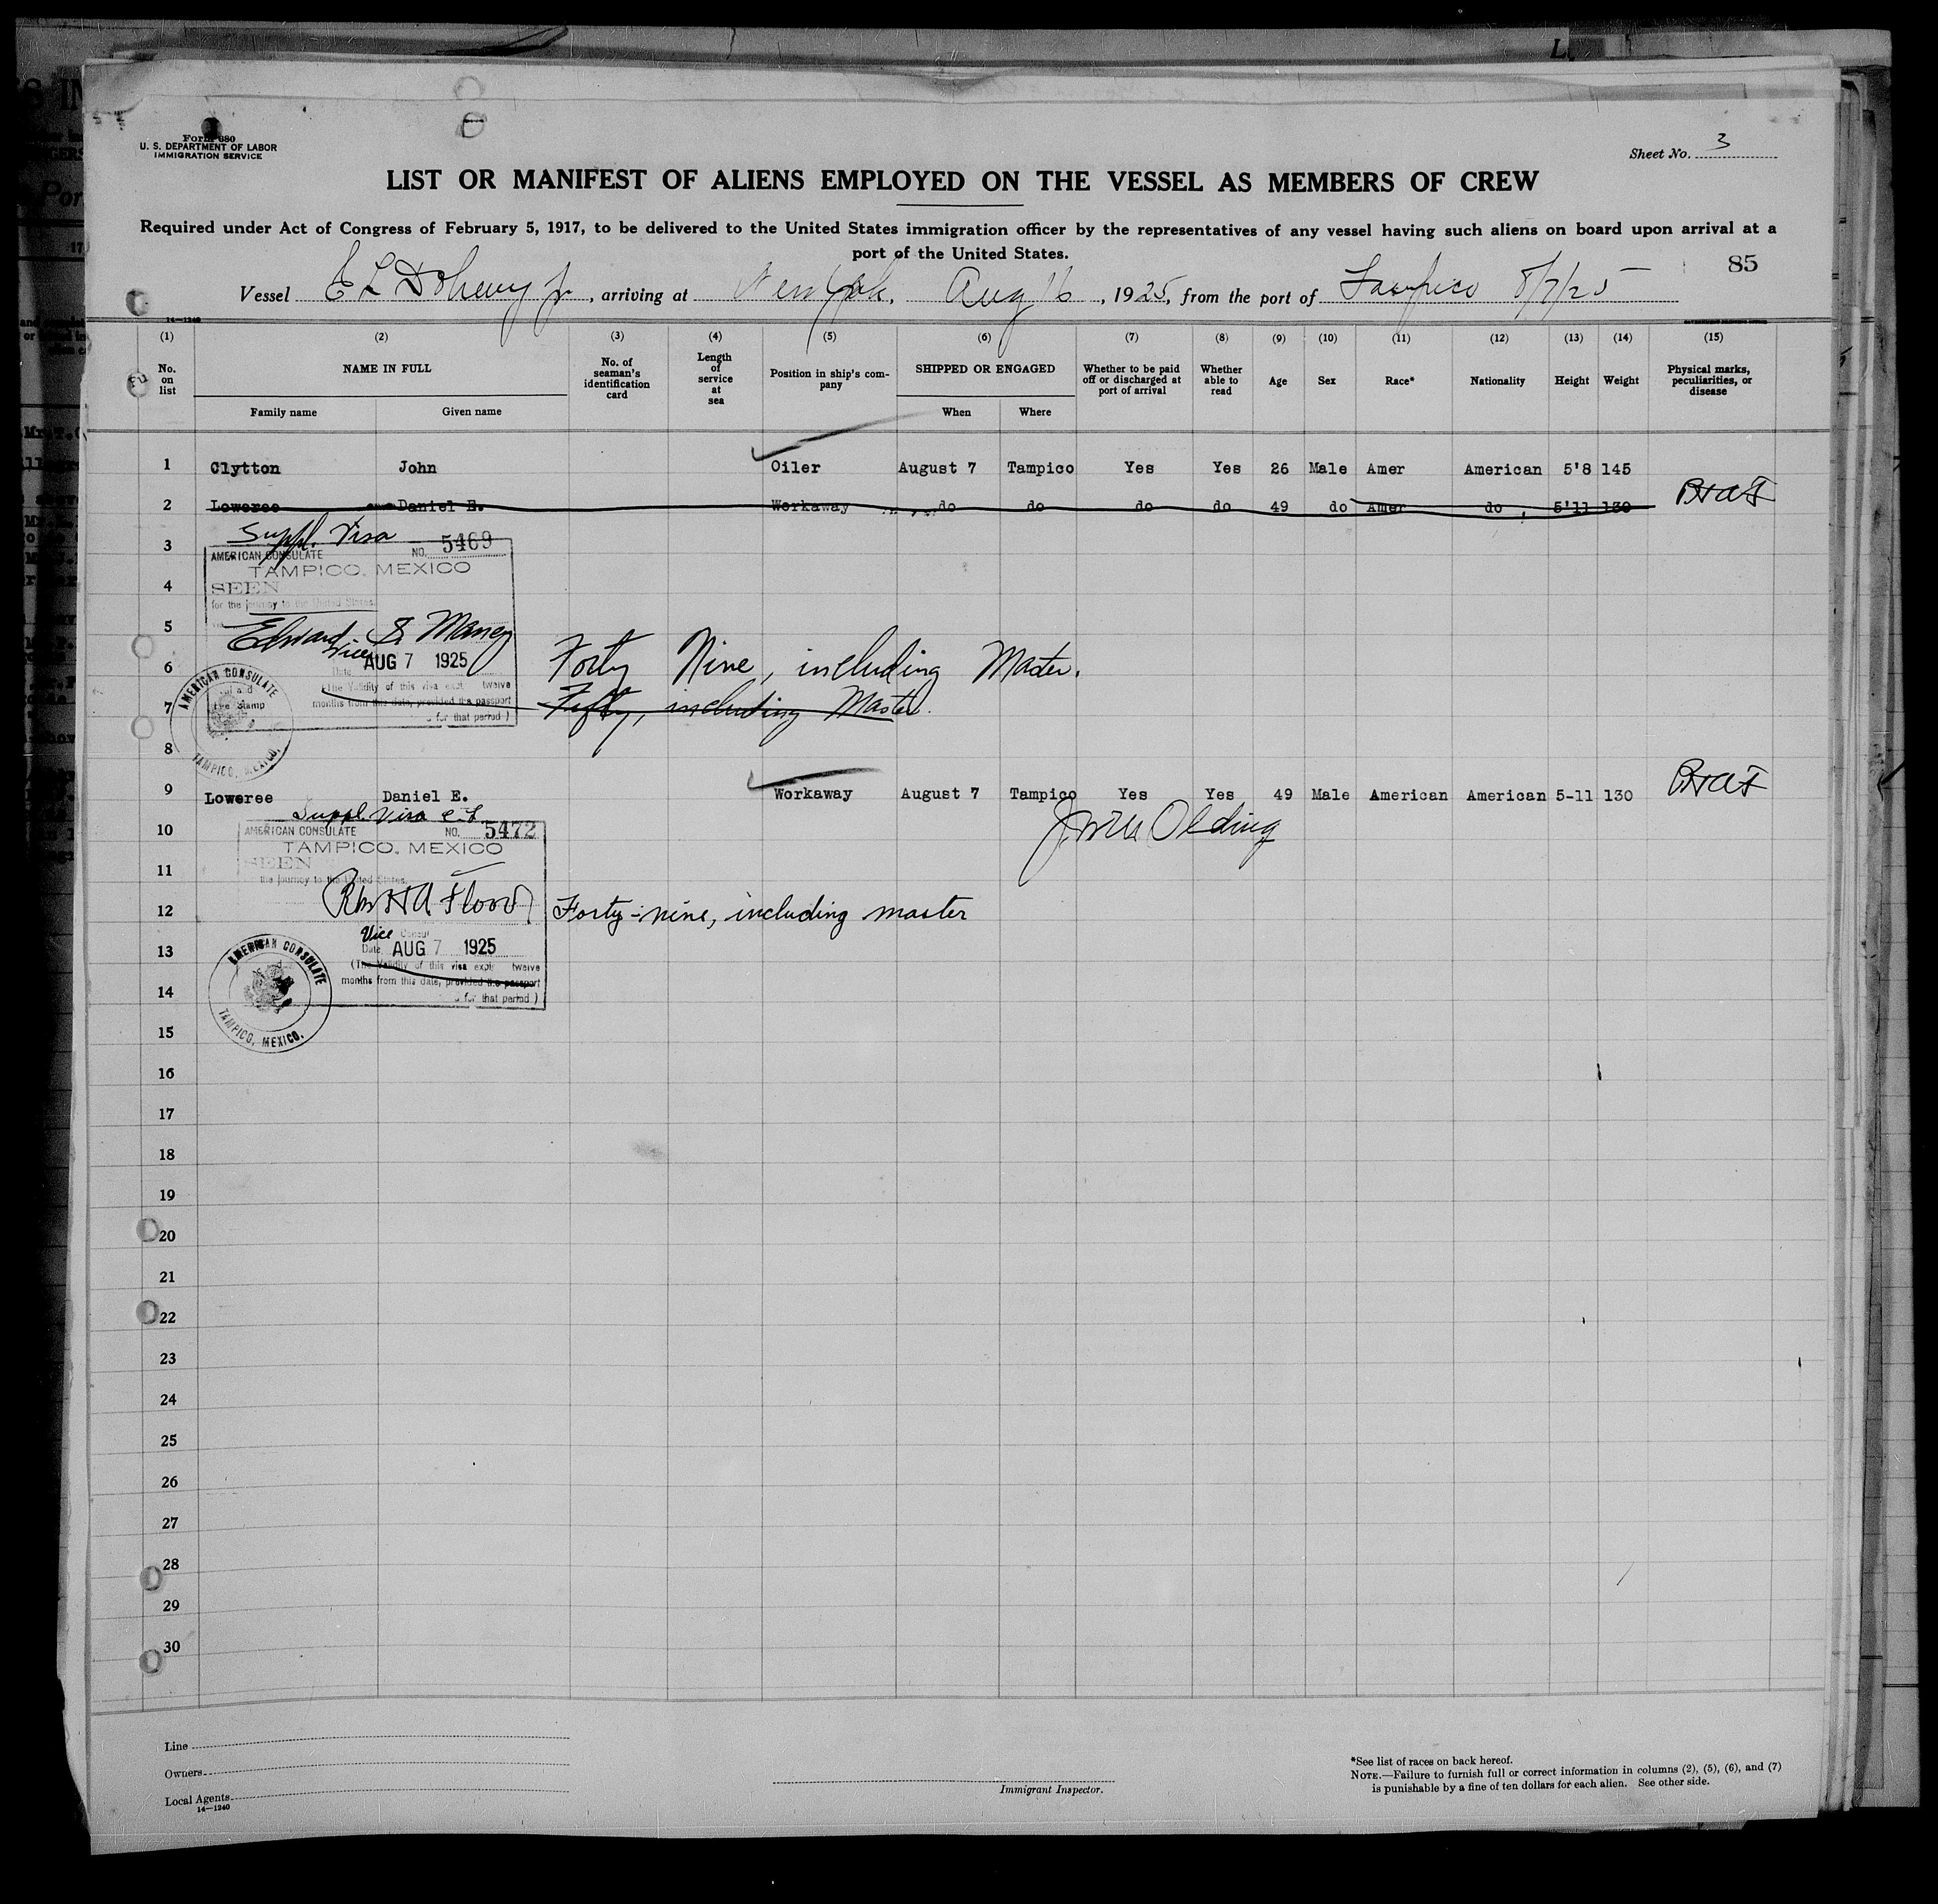 Form 680
U. S. DEPARTMENT OF LABOR
IMMIGRATION SERVICE
Sheet No. 3
LIST OR MANIFEST OF ALIENS EMPLOYED ON THE VESSEL AS MEMBERS OF CREW
Required under Act of Congress of February 5, 1917, to be delivered to the United States immigration officer by the representatives of any vessel having such aliens on board upon arrival at a
port of the United States.
85
Vessel E L Doheny Jr, arriving at New York, Aug 16, 1925, from the port of Tampico 8/7/25
14—1240
(1) (2) (3) (4) (5) (6) (7) (8) (9) (10) (11) (12) (13) (14) (15)
No. on list NAME IN FULL No. of seaman's identification card Length of service at sea Position in ship's company SHIPPED OR ENGAGED Whether to be paid off or discharged at port of arrival Whether able to read Age Sex Race* Nationality Height Weight Physical marks, peculiarities, or disease
Family name Given name When Where
1 Clytton John Oiler August 7 Tampico Yes Yes 26 Male Amer American 5'8 145
2 Loweree Daniel E. Workaway do do do do 49 do Amer do 5'11 130
3 Suppl. Visa
AMERICAN CONSULATE NO. 5469
TAMPICO, MEXICO
4 SEEN
for the journey to the United States.
5 Edward S. Maney
Vice
6 Date AUG 7 1925 Forty Nine, including Master.
(The Validity of this visa expi twelve
7 months from this date, provided the passport Fifty, including Master.
for that period)
AMERICAN CONSULATE
Fee Stamp
TAMPICO, MEXICO.
8
9 Loweree Daniel E. Workaway August 7 Tampico Yes Yes 49 Male American American 5-11 130
Suppl. Visa
10 AMERICAN CONSULATE NO. 5472
TAMPICO, MEXICO
SEEN
11 the journey to the United States.
12 Forty-nine, including master
Vice Consul
13 Date AUG 7 1925
(The Validity of this visa expi twelve
14 months from this date, provided the passport
for that period)
AMERICAN CONSULATE
TAMPICO, MEXICO.
15
16
17
18
19
20
21
22
23
24
25
26
27
28
29
30
Line
Owners
Local Agents
14—1240
Immigrant Inspector.
*See list of races on back hereof.
NOTE.—Failure to furnish full or correct information in columns (2), (5), (6), and (7)
is punishable by a fine of ten dollars for each alien. See other side.